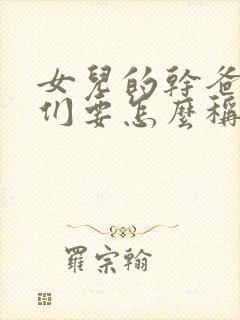 女兒的幹爸
们要怎麼稱
羅宗翰